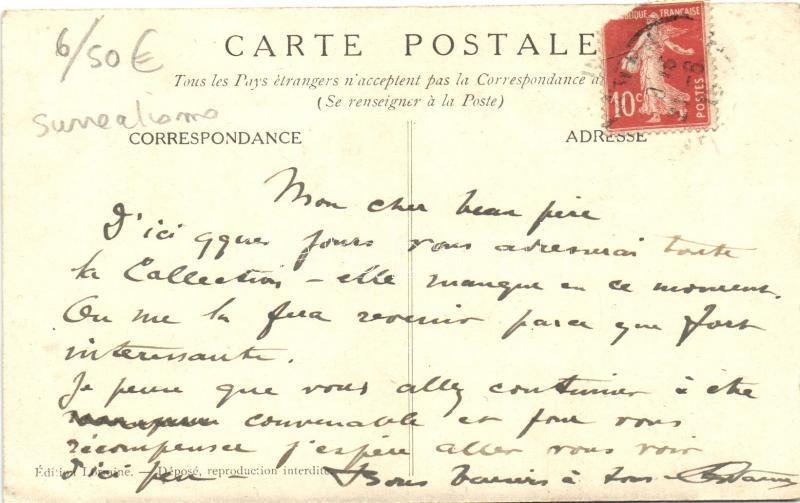 6/50€
Surrealismo
CARTE POSTALE
RÉPUBLIQUE FRANÇAISE
10c
POSTES
Tous les Pays étrangers n'acceptent pas la Correspondance au
(Se renseigner à la Poste)
CORRESPONDANCE
ADRESSE
Mon cher beau père
D'ici qques jours vous adresserai toute
la Collection - elle manque en ce moment.
On me la fera revenir parce que fort
intéressante.
Je pense que vous allez continuer à être
convenable et pour vous
récompenser j'espère aller vous voir
d'ici peu - Bons baisers à tous
Édition Lorraine. — Déposé, reproduction interdite